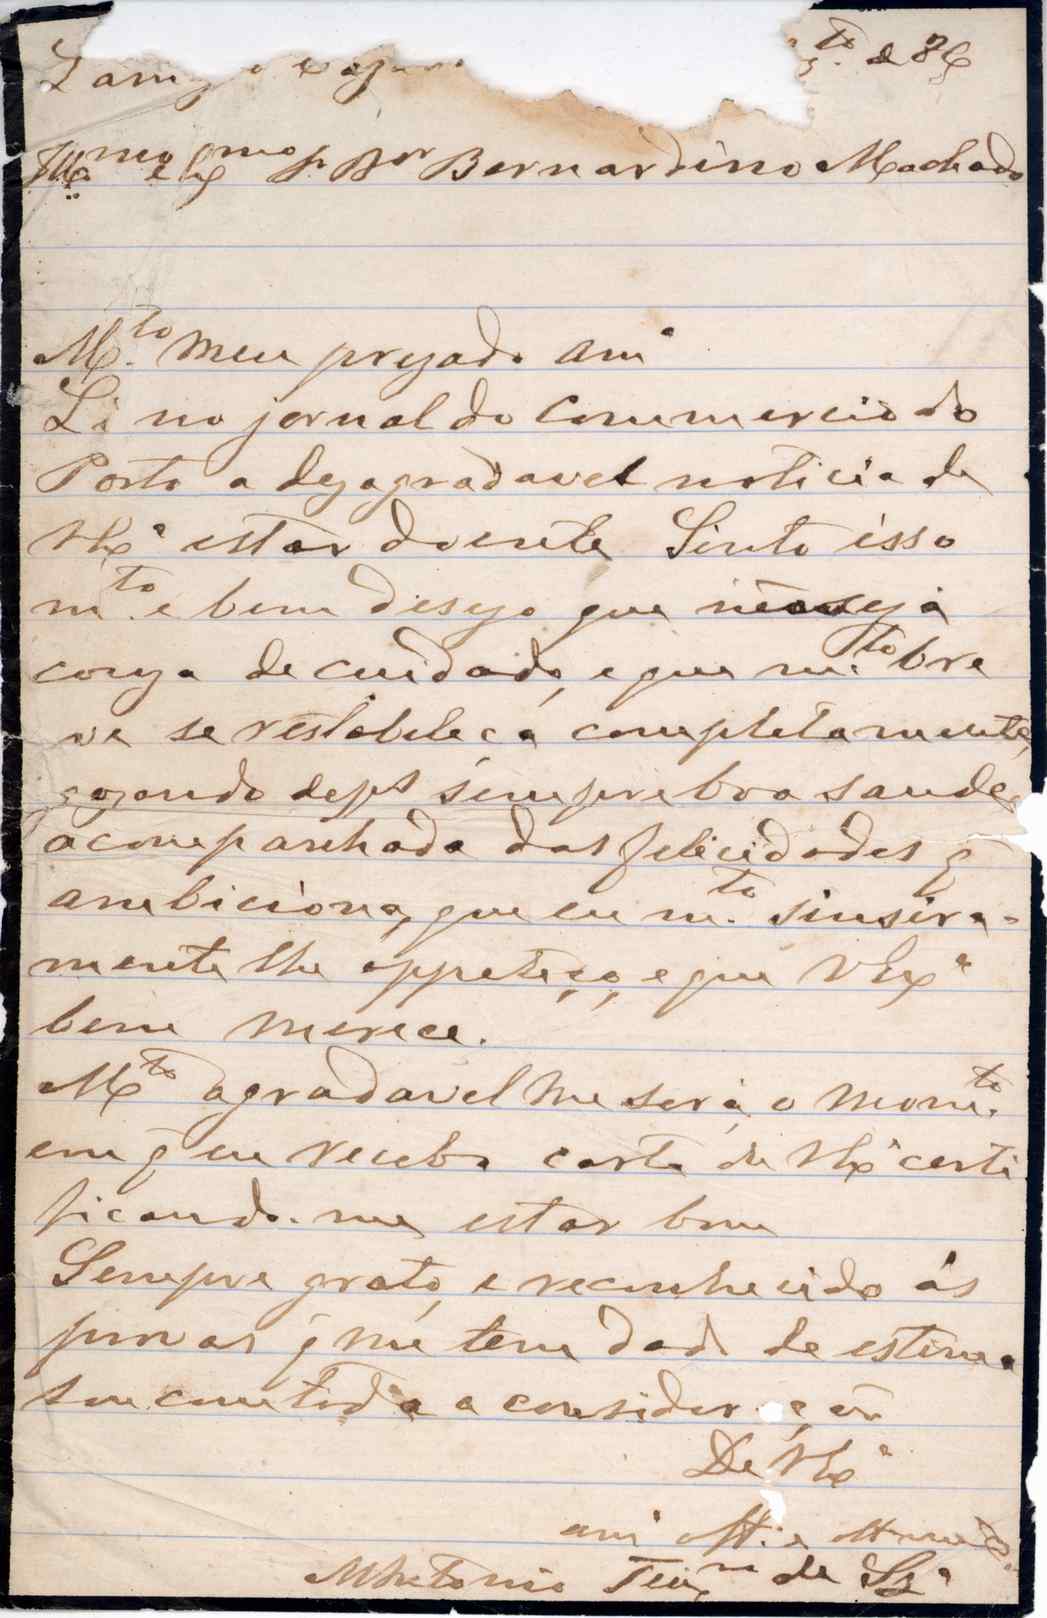 de 86
Illmo e Exmo Sr Dor Bernardino Machado
M.to meu prezado amo
Li no jornal do Commercio do
Porto a dezagradavel noticia de
VExa estar doente. Sinto isso
m.to e bem desejo que não seja
couza de cuidado, e que m.to bre
ve se restabeleça completamente,
gozando deps sempre boa saude
acompanhada das felicidades q̃
ambiciona, que eu m.to sinsira-
mente lhe appeteço, e que VExa
bem merece.
Mto agradavel me será o mom.to
em q̃ eu receba carta de VExa certi
ficando-me estar bom
Sempre grato, e reconhecido ás
provas q̃ me tem dado de estima
sou com toda a consideração
De VExa
amo
Antonio Teixra de Sza